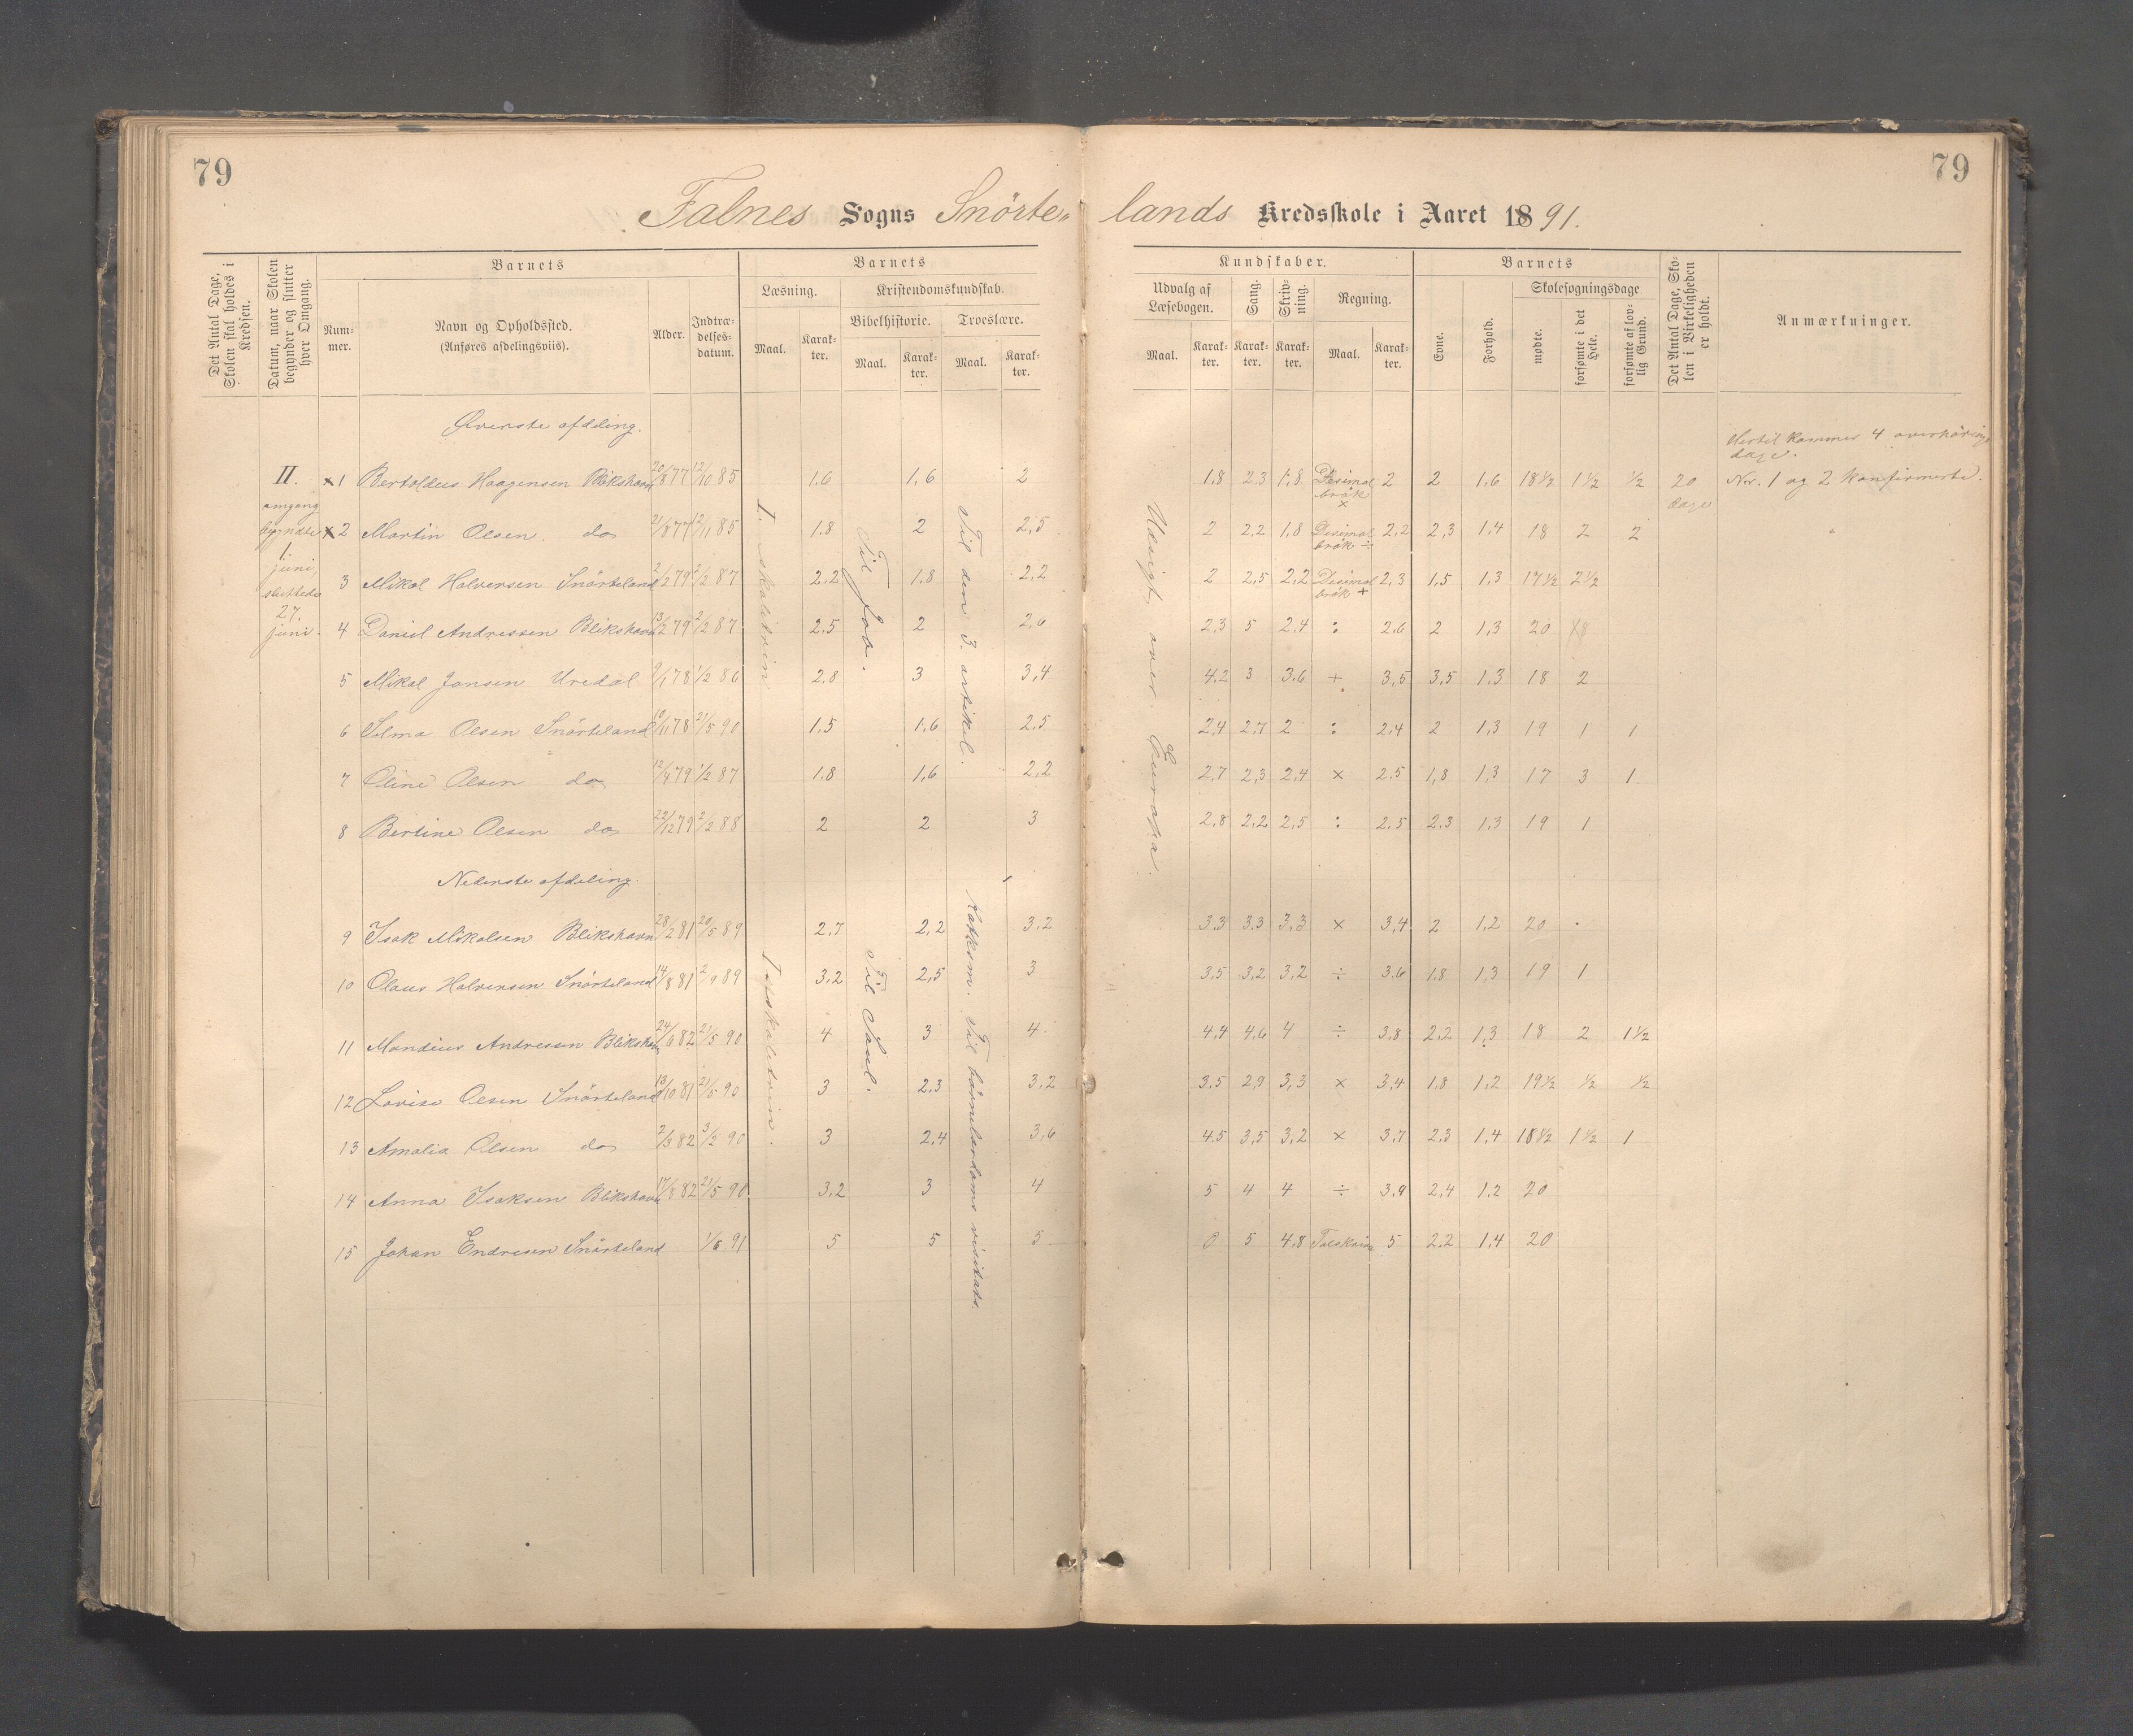 79
79
Falnes Sogns Snörte„ lands Kredsskole i Aaret 1891.
Det Antal Dage, Skolen skal holdes i Kredsen.
Datum, naar Skolen begynder og slutter hver Omgang.
Barnets
Nummer.
Navn og Opholdssted.
(Anføres afdelingsviis).
Alder.
Indtrædelses-datum.
Barnets
Læsning.
Maal.
Karakter.
Kristendomskundskab.
Bibelhistorie.
Maal.
Karakter.
Troeslære.
Maal.
Karakter.
Kundskaber.
Udvalg af Læsebogen.
Maal.
Karakter.
Sang.
Karakter.
Skrivning.
Karakter.
Regning.
Maal.
Karakter.
Barnets
Evne.
Forhold.
Skolesøgningsdage
mødte.
forsømte i det Hele.
forsømte af lovlig Grund.
Det Antal Dage, Skolen i Virkeligheden er holdt.
Anmærkninger.
Øverste afdeling.
Hertil kommer 4 overhörings
dage.
II. omgang begyndte 1. juni, sluttede 27. juni.
I. skaletrin
Til Job.
Til den 3. artikel.
Udsigt over Europa.
x 1 Bertoldus Haagensen Blikshavn 20/8 77 12/10 85 1.6 1,6 2 1.8 2.3 1.8 Desimalbrök x 2 2 1.6 18½ 1½ ½ 20 dage Nr. 1 og 2 konfirmerte.
x 2 Martin Olsen do 21/8 77 12/1 85 1.8 2 2,5 2 2,2 1.8 Desimalbrök ÷ 2,2 2,3 1.4 18 2 2 "
3 Mikal Halversen Snörteland 2/2 79 2/2 87 2.2 1.8 2.2 2 2,5 2,2 Desimalbrök + 2,3 1,5 1,3 17½ 2½
4 Daniel Andressen Blikshavn 13/2 79 2/2 87 2.5 2 2.6 2.3 5 2.4 : 2.6 2 1,3 20
5 Mikal Jansen Uredal 9/1 78 1/2 86 2.8 3 3,4 4.2 3 3.6 + 3.5 3.5 1.3 18 2
6 Selma Olsen Snörteland 10/1 78 21/5 90 1.5 1,6 2.5 2,4 2.7 2 : 2.4 2 1,3 19 1 1
7 Oline Olsen do 12/4 79 1/2 87 1.8 1,6 2,2 2.7 2,3 2.4 x 2.5 1,8 1,3 17 3 1
8 Bertine Olsen do 22/12 79 2/2 88 2 2 3 2,8 2.2 2,5 : 2.5 2.3 1.3 19 1
Nederste afdeling.
I. skaletrin.
Til Saul.
Katksm. Til börnelærdoms visitats.
9 Isak Mikalsen Blikshavn 28/2 81 20/5 89 2,7 2,2 3,2 3.3 3.3 3,3 x 3,4 2 1.2 20 .
10 Olaus Halversen Snörteland 14/8 81 2/9 89 3,2 2,5 3 3.5 3,2 3,2 ÷ 3.6 1.8 1,3 19 1
11 Mandius Andressen Blikshavn 24/6 82 21/5 90 4 3 4 4,4 4,6 4 ÷ 3.8 2.2 1,3 18 2 1½
12 Lovise Olsen Snörteland 13/10 81 21/5 90 3 2,3 3,2 3.5 2,9 3,3 x 3,4 1.8 1,2 19½ ½ ½
13 Amalia Olsen do 2/3 82 3/2 90 3 2,4 3,6 4.5 3,5 3,2 x 3,7 2.3 1,4 18½ 1½ 1
14 Anna Isaksen Blikshavn 17/8 82 21/5 90 3,2 3 4 5 4 4 ÷ 3.9 2.4 1.2 20
15 Johan Endresen Snörteland 1/6 91 5 5 5 0 5 4.8 5 2.2 1,4 20